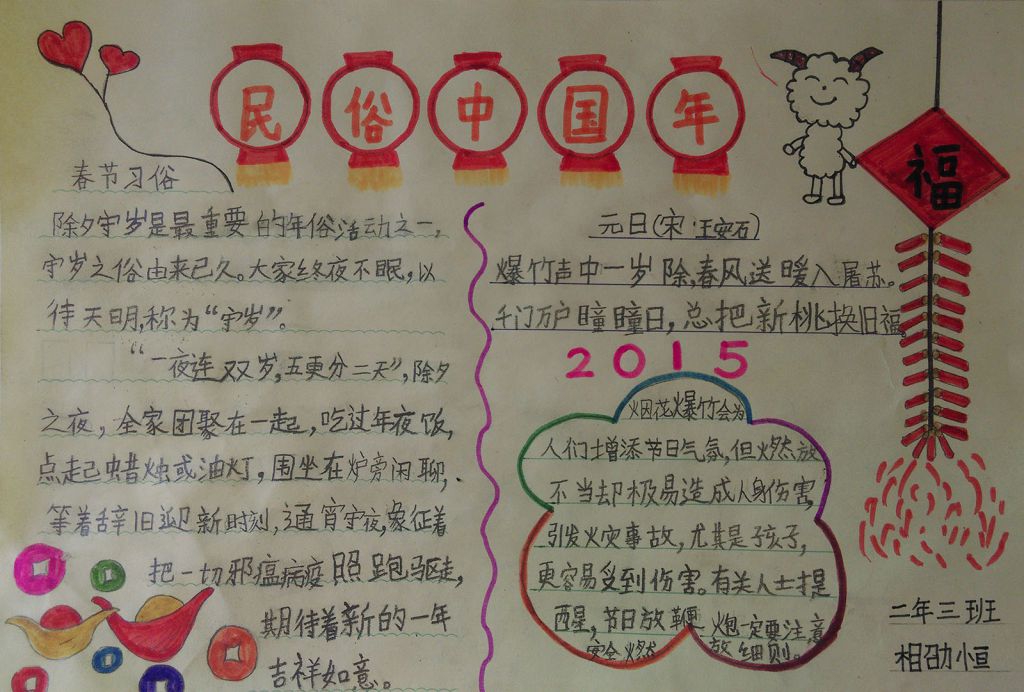 民俗中国年
福
春节习俗
除夕守岁是最重要的年俗活动之一,
守岁之俗由来已久。大家终夜不眠,以
待天明,称为“守岁”。
“一夜连双岁,五更分二天”,除夕
之夜,全家团聚在一起,吃过年夜饭,
点起蜡烛或油灯,围坐在炉旁闲聊,
等着辞旧迎新时刻,通宵守夜,象征着
把一切邪瘟病疫照跑驱走,
期待着新的一年
吉祥如意。
元日(宋·王安石)
爆竹声中一岁除,春风送暖入屠苏。
千门万户瞳瞳日,总把新桃换旧福。
2015
烟花爆竹会为
人们增添节日气氛,但燃放
不当却极易造成人身伤害,
引发火灾事故,尤其是孩子,
更容易受到伤害。有关人士提
醒,节日放鞭炮一定要注意
安全燃放细则。
二年三班
相劭小恒